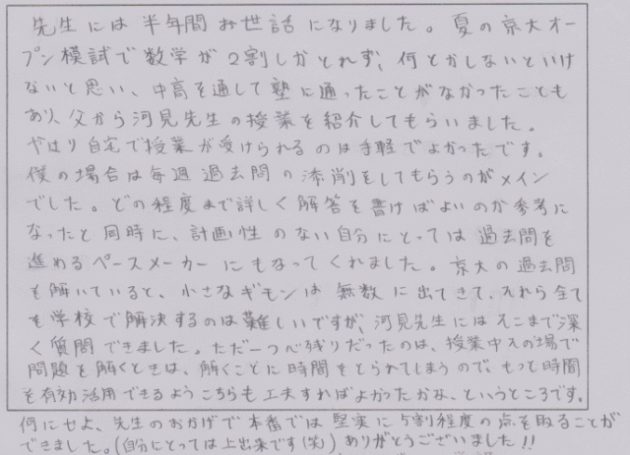 先生には半年間お世話になりました。夏の京大オー
プン模試で数学が2割しかとれず、何とかしないといけ
ないと思い、中高を通して塾に通ったことがなかったことも
あり父から河見先生の授業を紹介してもらいました。
やはり自宅で授業が受けられるのは手軽でよかったです。
僕の場合は毎週過去問の添削をしてもらうのがメイン
でした。どの程度まで詳しく解答を書けばよいのか参考に
なったと同時に、計画性のない自分にとっては過去問を
進めるペースメーカーにもなってくれました。京大の過去問
を解いていると、小さなギモンは無数に出てきて、それら全て
を学校で解決するのは難しいですが、河見先生にはそこまで深
く質問できました。ただ一つ心残りだったのは、授業中その場で
問題を解くときは、解くことに時間をとられてしまうので、もっと時間
を有効活用できるようこちらも工夫すればよかったかな、というところです。
何にせよ、先生のおかげで本番では堅実に5割程度の点を取ることが
できました。(自分にとっては上出来です(笑)) ありがとうございました!!